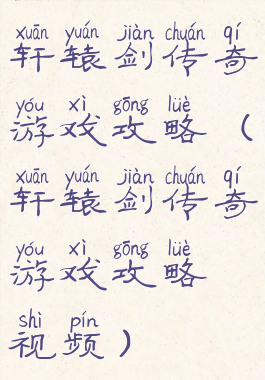 xuān yuán jiàn chuán qí
轩辕剑传奇
yóu xì gōng lüè
游戏攻略（
xuān yuán jiàn chuán qí
轩辕剑传奇
yóu xì gōng lüè
游戏攻略
shì pín
视频）